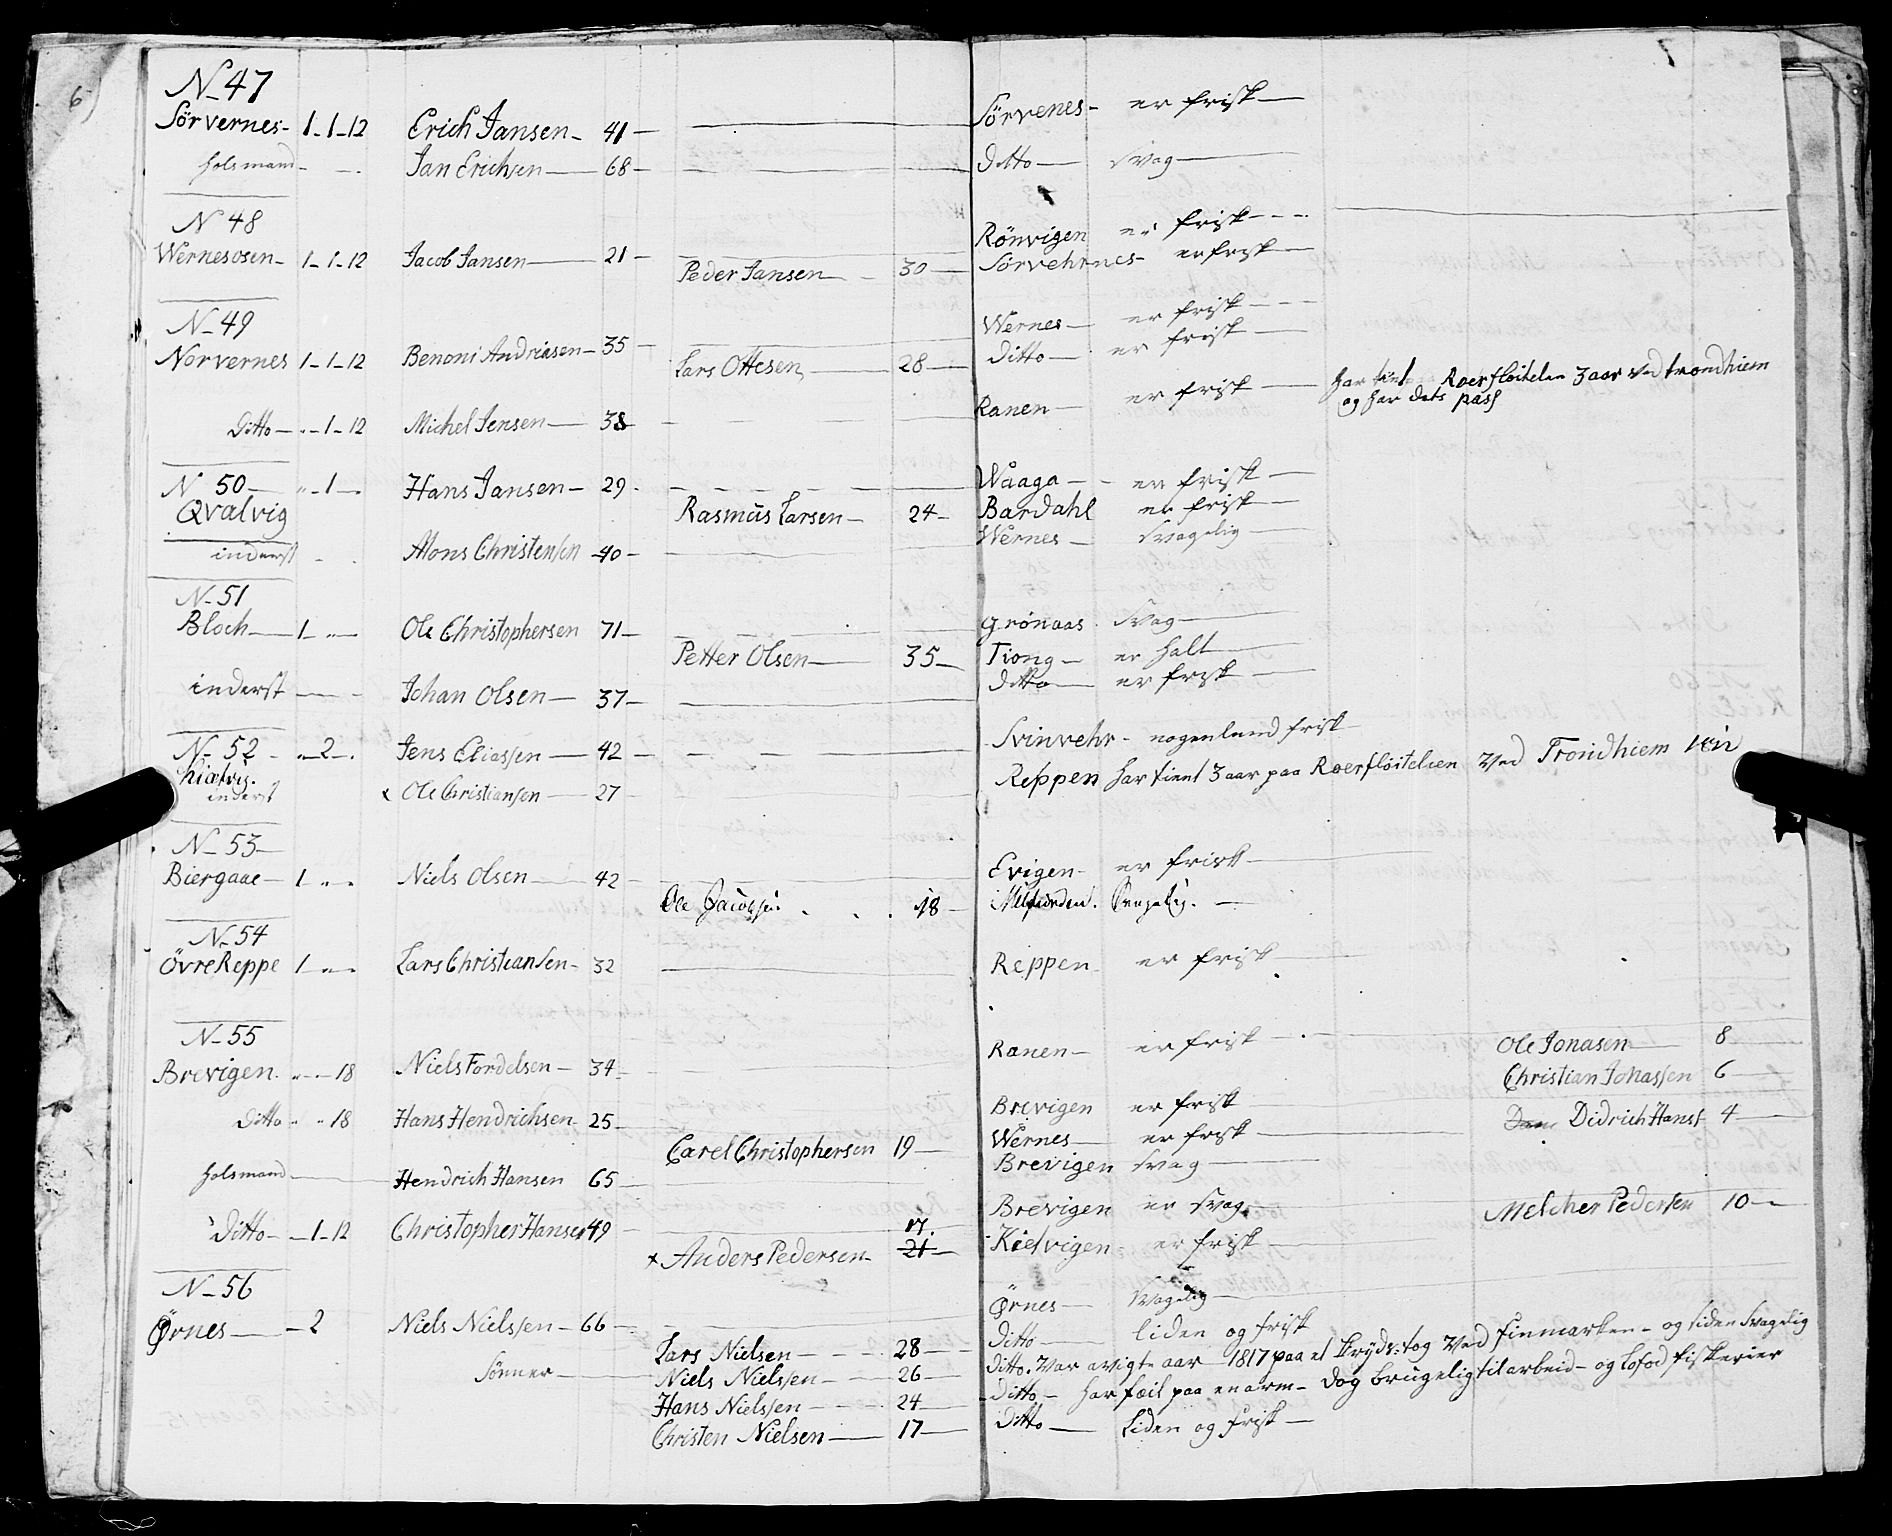 6
7
N 47
Sörvernes - 1 - 1 - 12 Erich Jansen - 41 - Sörvenes - er frisk
holsmand - Jan Erichsen - 68 - Ditto - svag
N 48
Rönvigen er frisk
Wernesosen - 1 - 1 - 12 Jacob Jansen - 21 -
Peder Jansen - 30 - Sörvehrnes - er frisk
N 49
Wernes - er frisk
Norvernes 1 - 1 - 12 Benoni Andriasen - 35 -
Lars Ottesen - 28 - Ditto - er frisk
Ranen - er frisk - har tient Roerfløitelen 3 aar ved trondhiem
og har dets pass
Ditto - " - 1 - 12 Michel Jensen - 38 -
N 50 - " - 1 - Hans Jansen - 29 - Waaga - er frisk
Qvalvig
Rasmus Larsen - 24 - Bardahl er frisk
inderst Mons Christensen 40 - Wernes - svagelig
N 51
Bloch - 1 - " - Ole Christophersen 71 - Grönaas svag
Petter Olsen - 35 - Tiong - er halt
inderst - Johan Olsen - 37 - Ditto - er frisk
N 52 - " - 2 - Jens Eliassen - 42 - Svinvehr - nogenlund frisk
inderst x Ole Christiansen - 27 - Reppen har tient 3 aar paa Roerfløitelsen ved Trondhiem
N 53
Biergaae - 1 " " Niels Olsen - 42 - Evigen - er frisk
Ole Jacobsen 18 -
N 54
ÖvreReppe 1 " " Lars Christiansen - 32 Reppen er frisk
N 55
Brevigen " - " - 18 Niels Fordelsen - 34 - Ranen - er frisk - Ole Jonasen - 8
Christian Johassen 6
Ditto " " 18 Hans Hendrichsen 25 - Brevigen er frisk
Carel Christophersen 19 - Wernes - er frisk - Didrich Hans 4
holsmand - Hendrich Hansen 65 - Brevigen svag
Ditto - 1 - 12 Christopher Hansen 49 - Brevigen er svag Melcher Pedersen 10
17
x Anders Pedersen 21 - Kielvigen er frisk
N 56
Ørnes - 2 Niels Nielssen - 66 - Ørnes - svagelig
Lars Nielsen - 28 - Ditto - liden og frisk
Sönner - Niels Nielssen - 26 - Ditto. Var avigte aar 1817 paa et Kryds:tog ved Finmarken - og siden svagelig
Hans Nielssen - 24 - Ditto - har feil paa en arm - dog brugelig til arbeid - og Lofod fiskerier
Christen Nielsen - 17 - Ditto - Liden og frisk